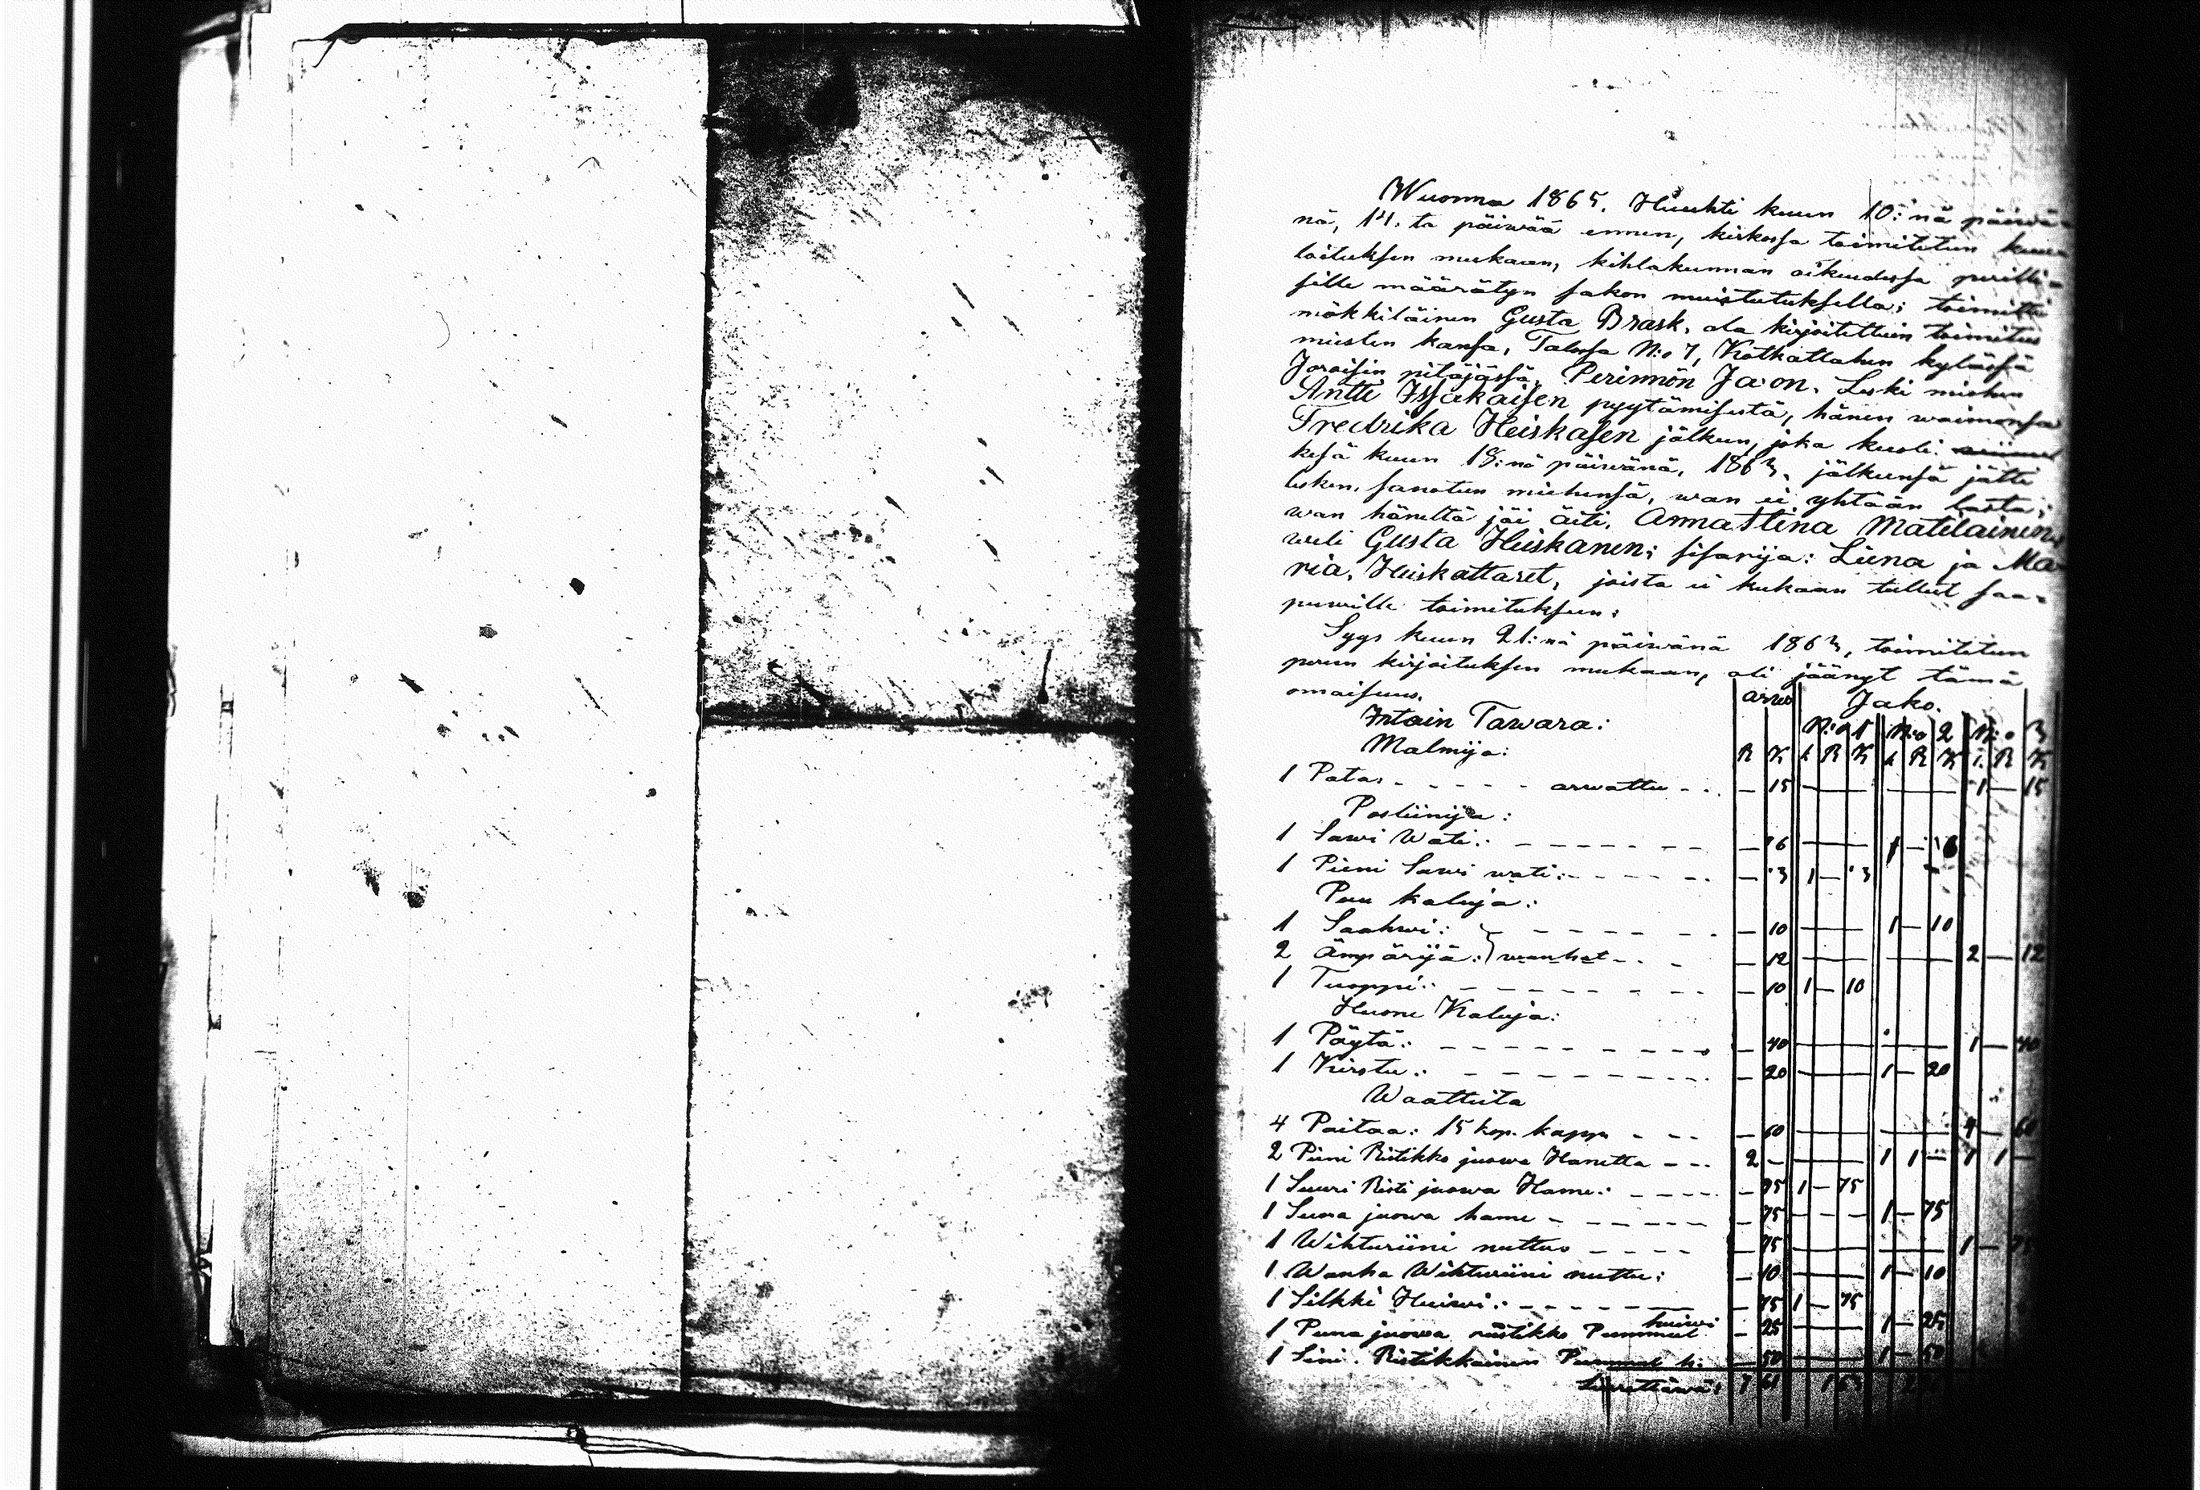 Wuonna 1865. Huuhti kuun 10:nä päiwä-
nä, 14.ta päiwää ennen, kirkossa toimitetun kuu-
loituksen mukaan, kihlakunnan oikeudessa perilli-
sille määrätyn sakon muistutuksella; toimitti
mökkiläinen Gusta Brask, ala kirjoitettuin toimitus
miesten kansa, Talossa N:o 7, Kotkatlahen kylässä
Joroisin pitäjässä, Perinnön Jaon. Leski miehen
Antti Issakaisen pyytämisestä, hänen waimonsa
Fredrika Heiskasen jälkeen, joka kuoli
kesä kuun 18:nä päiwänä, 1863, jälkeensä jätti
lesken, sanotun miehensä, wan ei yhtään lasta;
wan häneltä jäi äiti, Annastina Matilainen,
weli Gusta Heiskanen; sisarija: Liena ja Ma-
ria, Heiskattaret, joista ei kukaan tullut saa-
puwille toimitukseen;
Syys kuun 21:nä päiwänä 1863, toimitetun
perun kirjoituksen mukaan, oli jäänyt tämä
omaisuus. arwo Jako.
Irtain Tawara: N:o 1 N:o 2 N:o 3
Malmija: R K l R K l R K l. R K
1 Pata. - - - - - arwattu - - - 15 — 1 — 15
Posliinija:
1 Sawi Wati: - - - - - - - — 16 — 1 — 16
1 Pieni Sawi wati: - - - - - - — 3 1 — 3
Puu kaluja:
1 Saahwi: - - - - - - - — 10 — 1 — 10
2 Ämpärijä: } wanhat - - - — 12 — 2 — 12
1 Tuoppi: - - - - - - - — 10 1 — 10
Huone Kaluja:
1 Pöytä: - - - - - - - — 40 — 1 — 40
1 Kirstu: - - - - - - - — 20 — 1 — 20
Waatteita
4 Paitaa: 15 kop. kappa - - - — 60 — 4 — 60
2 Pieni Ristikko juowa Hametta - - - 2 — 1 1 — 1 1 —
1 Suuri Risti juowa Hame: - - - - — 75 1 — 75
1 Suora juowa hame - - - - - - — 75 - - - 1 — 75
1 Wihturiini nuttuo - - - - — 75 — 1 — 75
1 Wanha Wihturiini nuttu: — 10 — 1 — 10
1 Silkki Huiwi: - - - - - - — 75 1 — 75
1 Puna juowa ristikko Pummul huiwi — 25 — 1 — 25
1 Sini. Ristikkainen Pummul h. — 50 — 1 — 50
Siirettäwä: 7 61 1 63